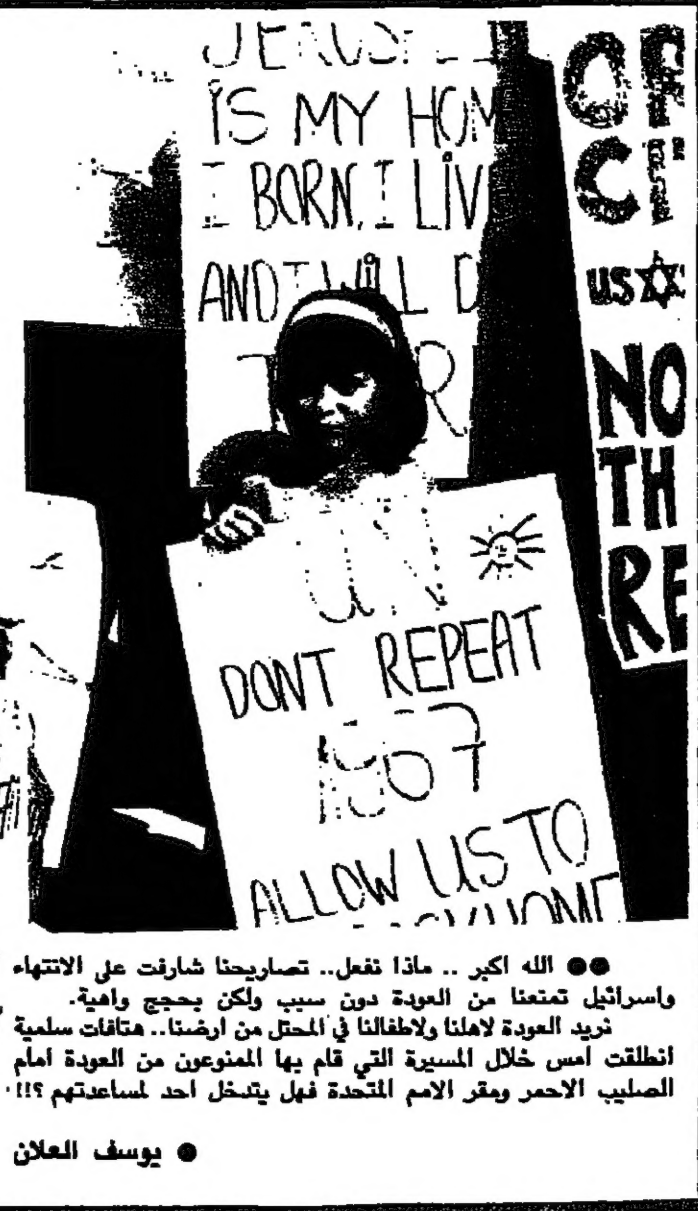 IS MY HOM
I BORN, I LIV
AND I WILL D
US
NO
TH
RE
UN
DONT REPEAT
1967
ALLOW US TO
الله اكبر .. ماذا نفعل.. تصاريحنا شارفت على الانتهاء
واسرائيل تمنعنا من العودة دون سبب ولكن بحجج واهية.
نريد العودة لاهلنا ولاطفالنا في المحتل من ارضنا.. هتافات سلمية
انطلقت امس خلال المسيرة التي قام بها الممنوعون من العودة امام
الصليب الاحمر ومقر الامم المتحدة فهل يتدخل احد لمساعدتهم ؟!!
يوسف العلان